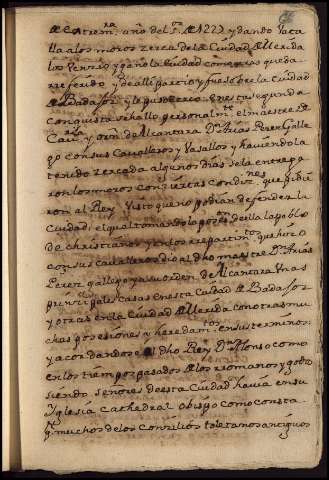 de Extrem.ra año del s.or de 1227 y dando vata
lla a los moros zerca de la Ciudad de Merida
los Penzio y gano la Ciudad como arias queda
referido y de alli partio y fue sobre la Ciudad
de Badajoz y le puso cerco en esta segunda
conquista se hallo personalm.te el maestre de
Cav.ria y orn de Alcantara Dn Arias Perez Galle
go con sus Cavalleros y Vasallos y haviendola
tenido zercada algunos dias se la entrega
ron los moros con ziertas Condiz.nes que pidie
ron al Rey visto que no podian defender la
Ciudad el qual tomando la poses.on de ella la poblo
de christianos y en los repartim.tos que hizo
con sus Cavalleros dio al dho maestre Dn Arias
Perez gallego y a su orden de Alcantara unas
prinzipales casas en esta Ciudad de Badajoz
y otras en la Ciudad de Merida con otras mu
chas posesiones y heredam.tos en sus terminos
y acordandose el dho Rey Dn Alonso como
en los tiempos pasados de los romanos y godos
siendo señores de esta Ciudad havia en su
Yglesia Cathedral obispo como consta
p.r muchos de los Conzilios toletanos antiguos